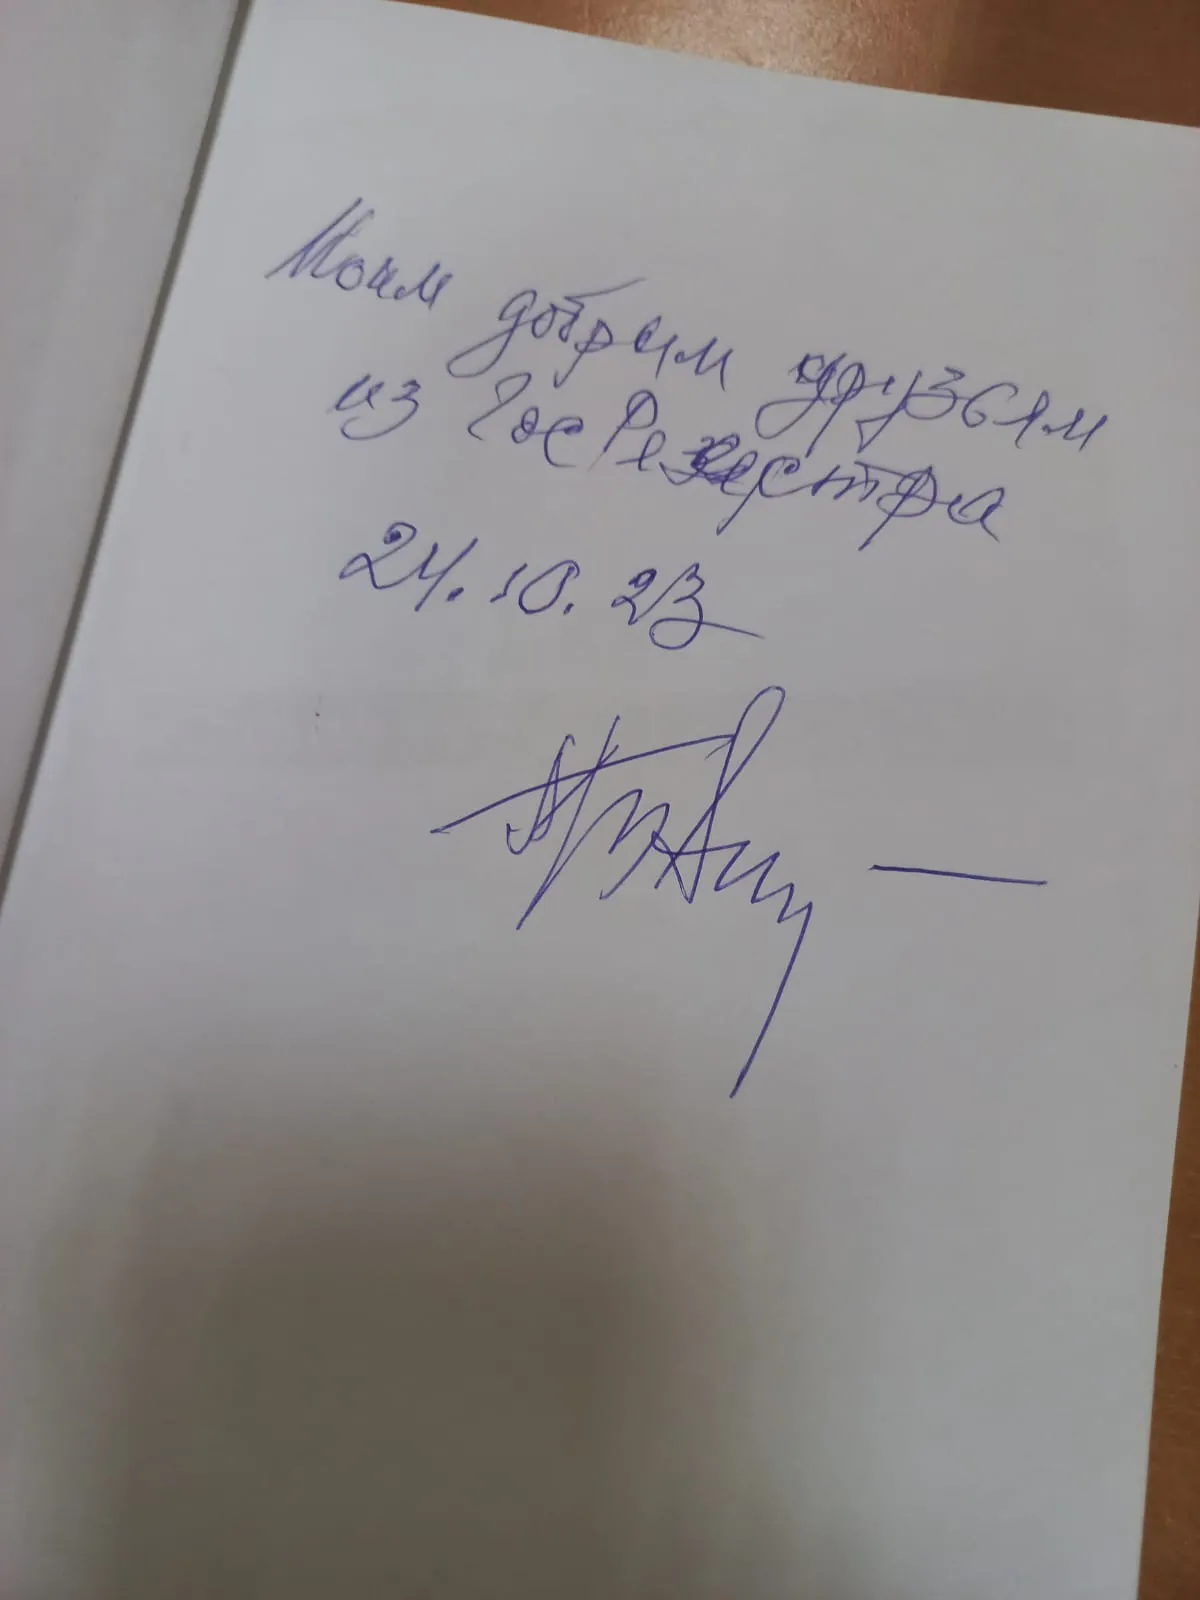 Моим добрым друзьям
из ГосРеестра
24.10.23